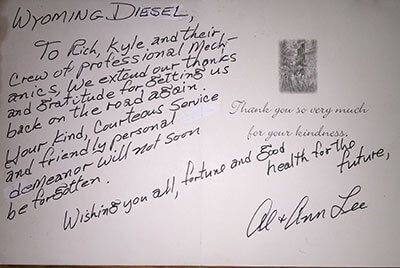 WYOMING DIESEL,
To Rich, Kyle, and their
Crew of professional Mech-
anics, We extend our thanks
and gratitude for getting us
back on the road again.
Your Kind, Courteous Service
and friendly personal
demeanor will not soon
be forgotten.
Wishing you all, fortune and good
health for the
future,
Al & Ann Lee
Thank you so very much
for your kindness.